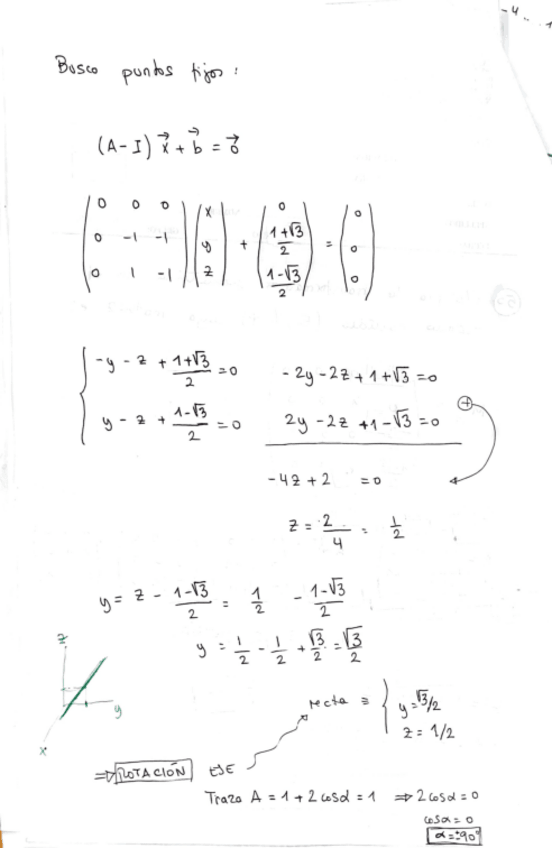 -4..
Busco puntos fijos:
(A-I) x⃗ + b⃗ = 0⃗
( 0 0 0 ; 0 -1 -1 ; 0 1 -1 ) ( x ; y ; z ) + ( 0 ; (1+√3)/2 ; (1-√3)/2 ) = ( 0 ; 0 ; 0 )
{ -y - z + (1+√3)/2 = 0    -2y - 2z + 1 + √3 = 0
y - z + (1-√3)/2 = 0    2y - 2z + 1 - √3 = 0 ⊕
-4z + 2 = 0
z = 2/4 = 1/2
y = z - (1-√3)/2 = 1/2 - (1-√3)/2
y = 1/2 - 1/2 + √3/2 = √3/2
z
y
x
recta ≡ { y = √3/2
z = 1/2
⇒ ROTACIÓN EJE
Traza A = 1 + 2cosα = 1 ⇒ 2cosα = 0
cosα = 0
α = ±90°